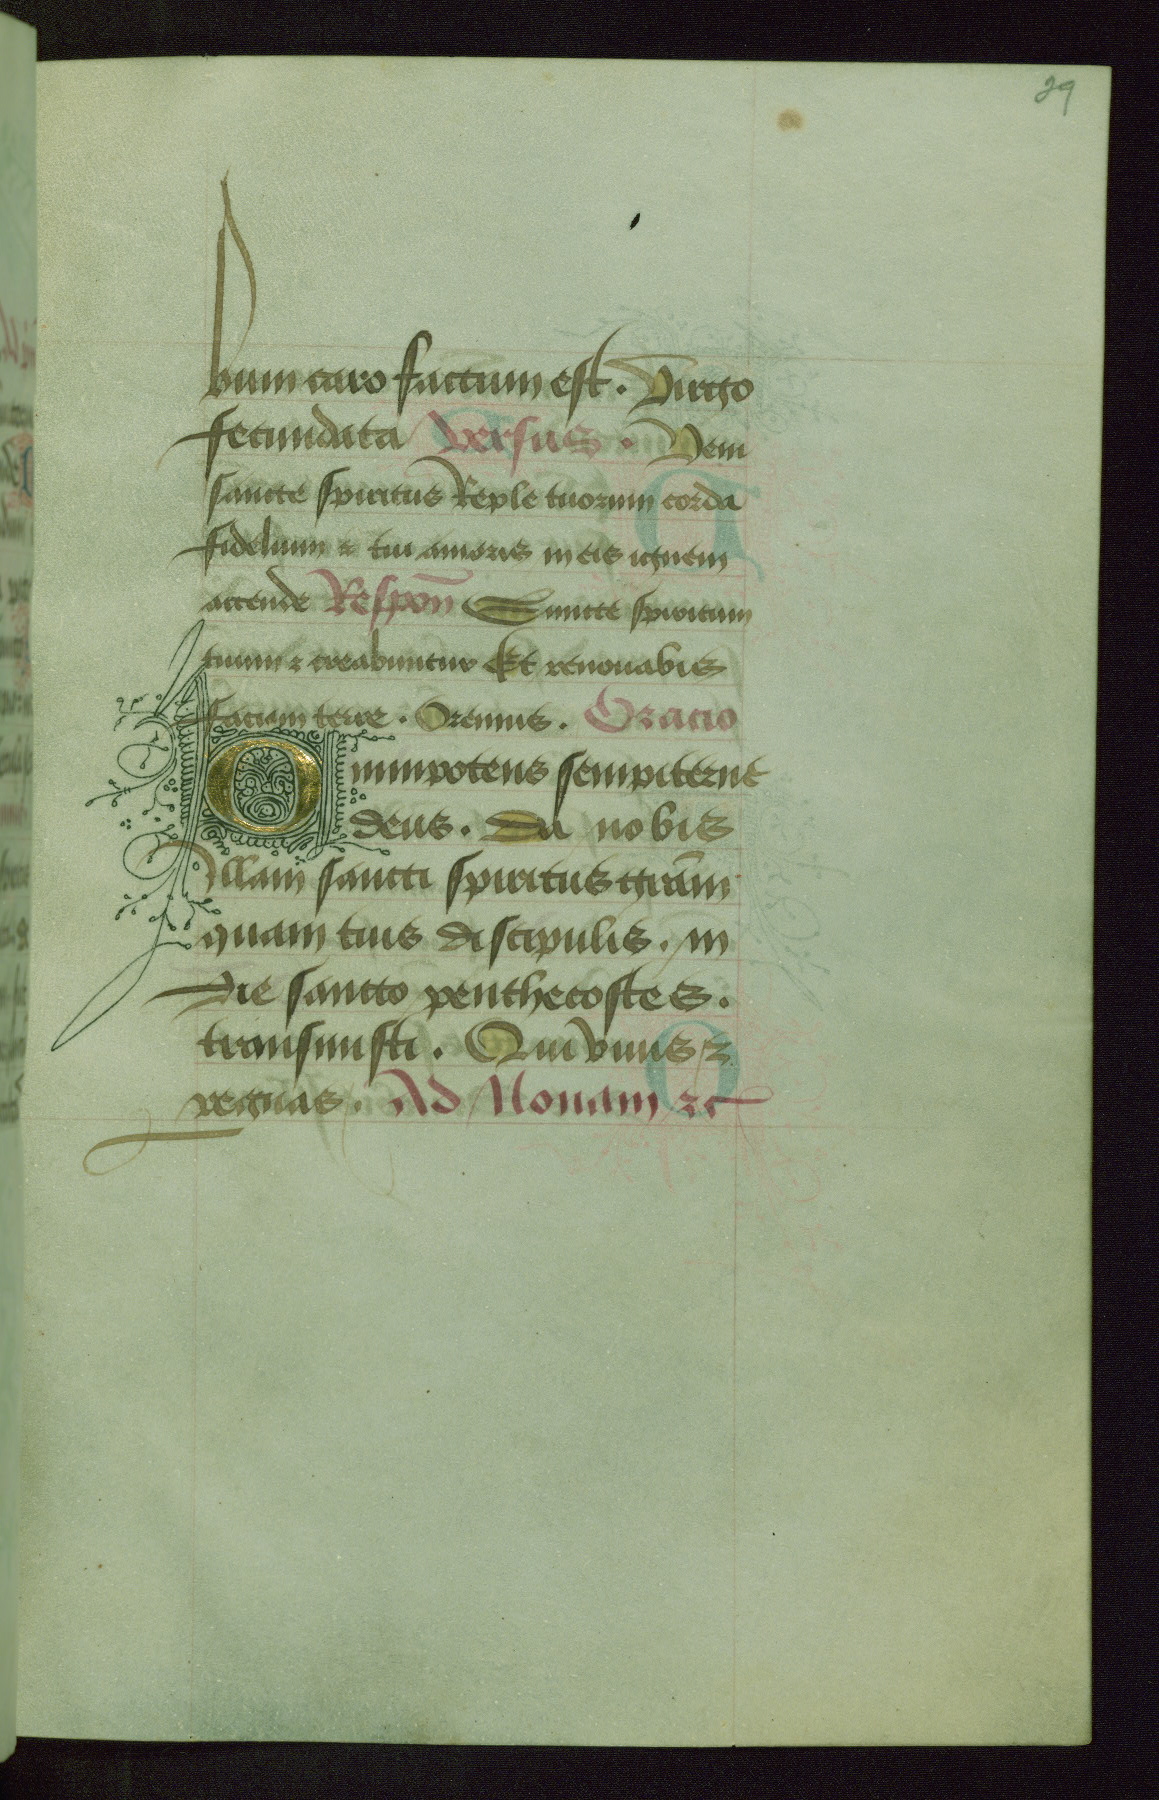 29
bum caro factum est. Virgo
fecundata Versus. Veni
sancte spiritus Reple tuorum corda
fidelium ⁊ tui amoris in eis ignem
accende Respoñ Emitte spiritum
tuum ⁊ creabuntur Et renouabis
faciem terre. Oremus. Oracio
Omnipotens sempiterne
deus. Da nobis
Illam sancti spiritus grãm
quam tuis discipulis. in
die sancto penthecostes.
transmisti. Qui viuis ⁊
regnas. Ad Nonam ⁊c